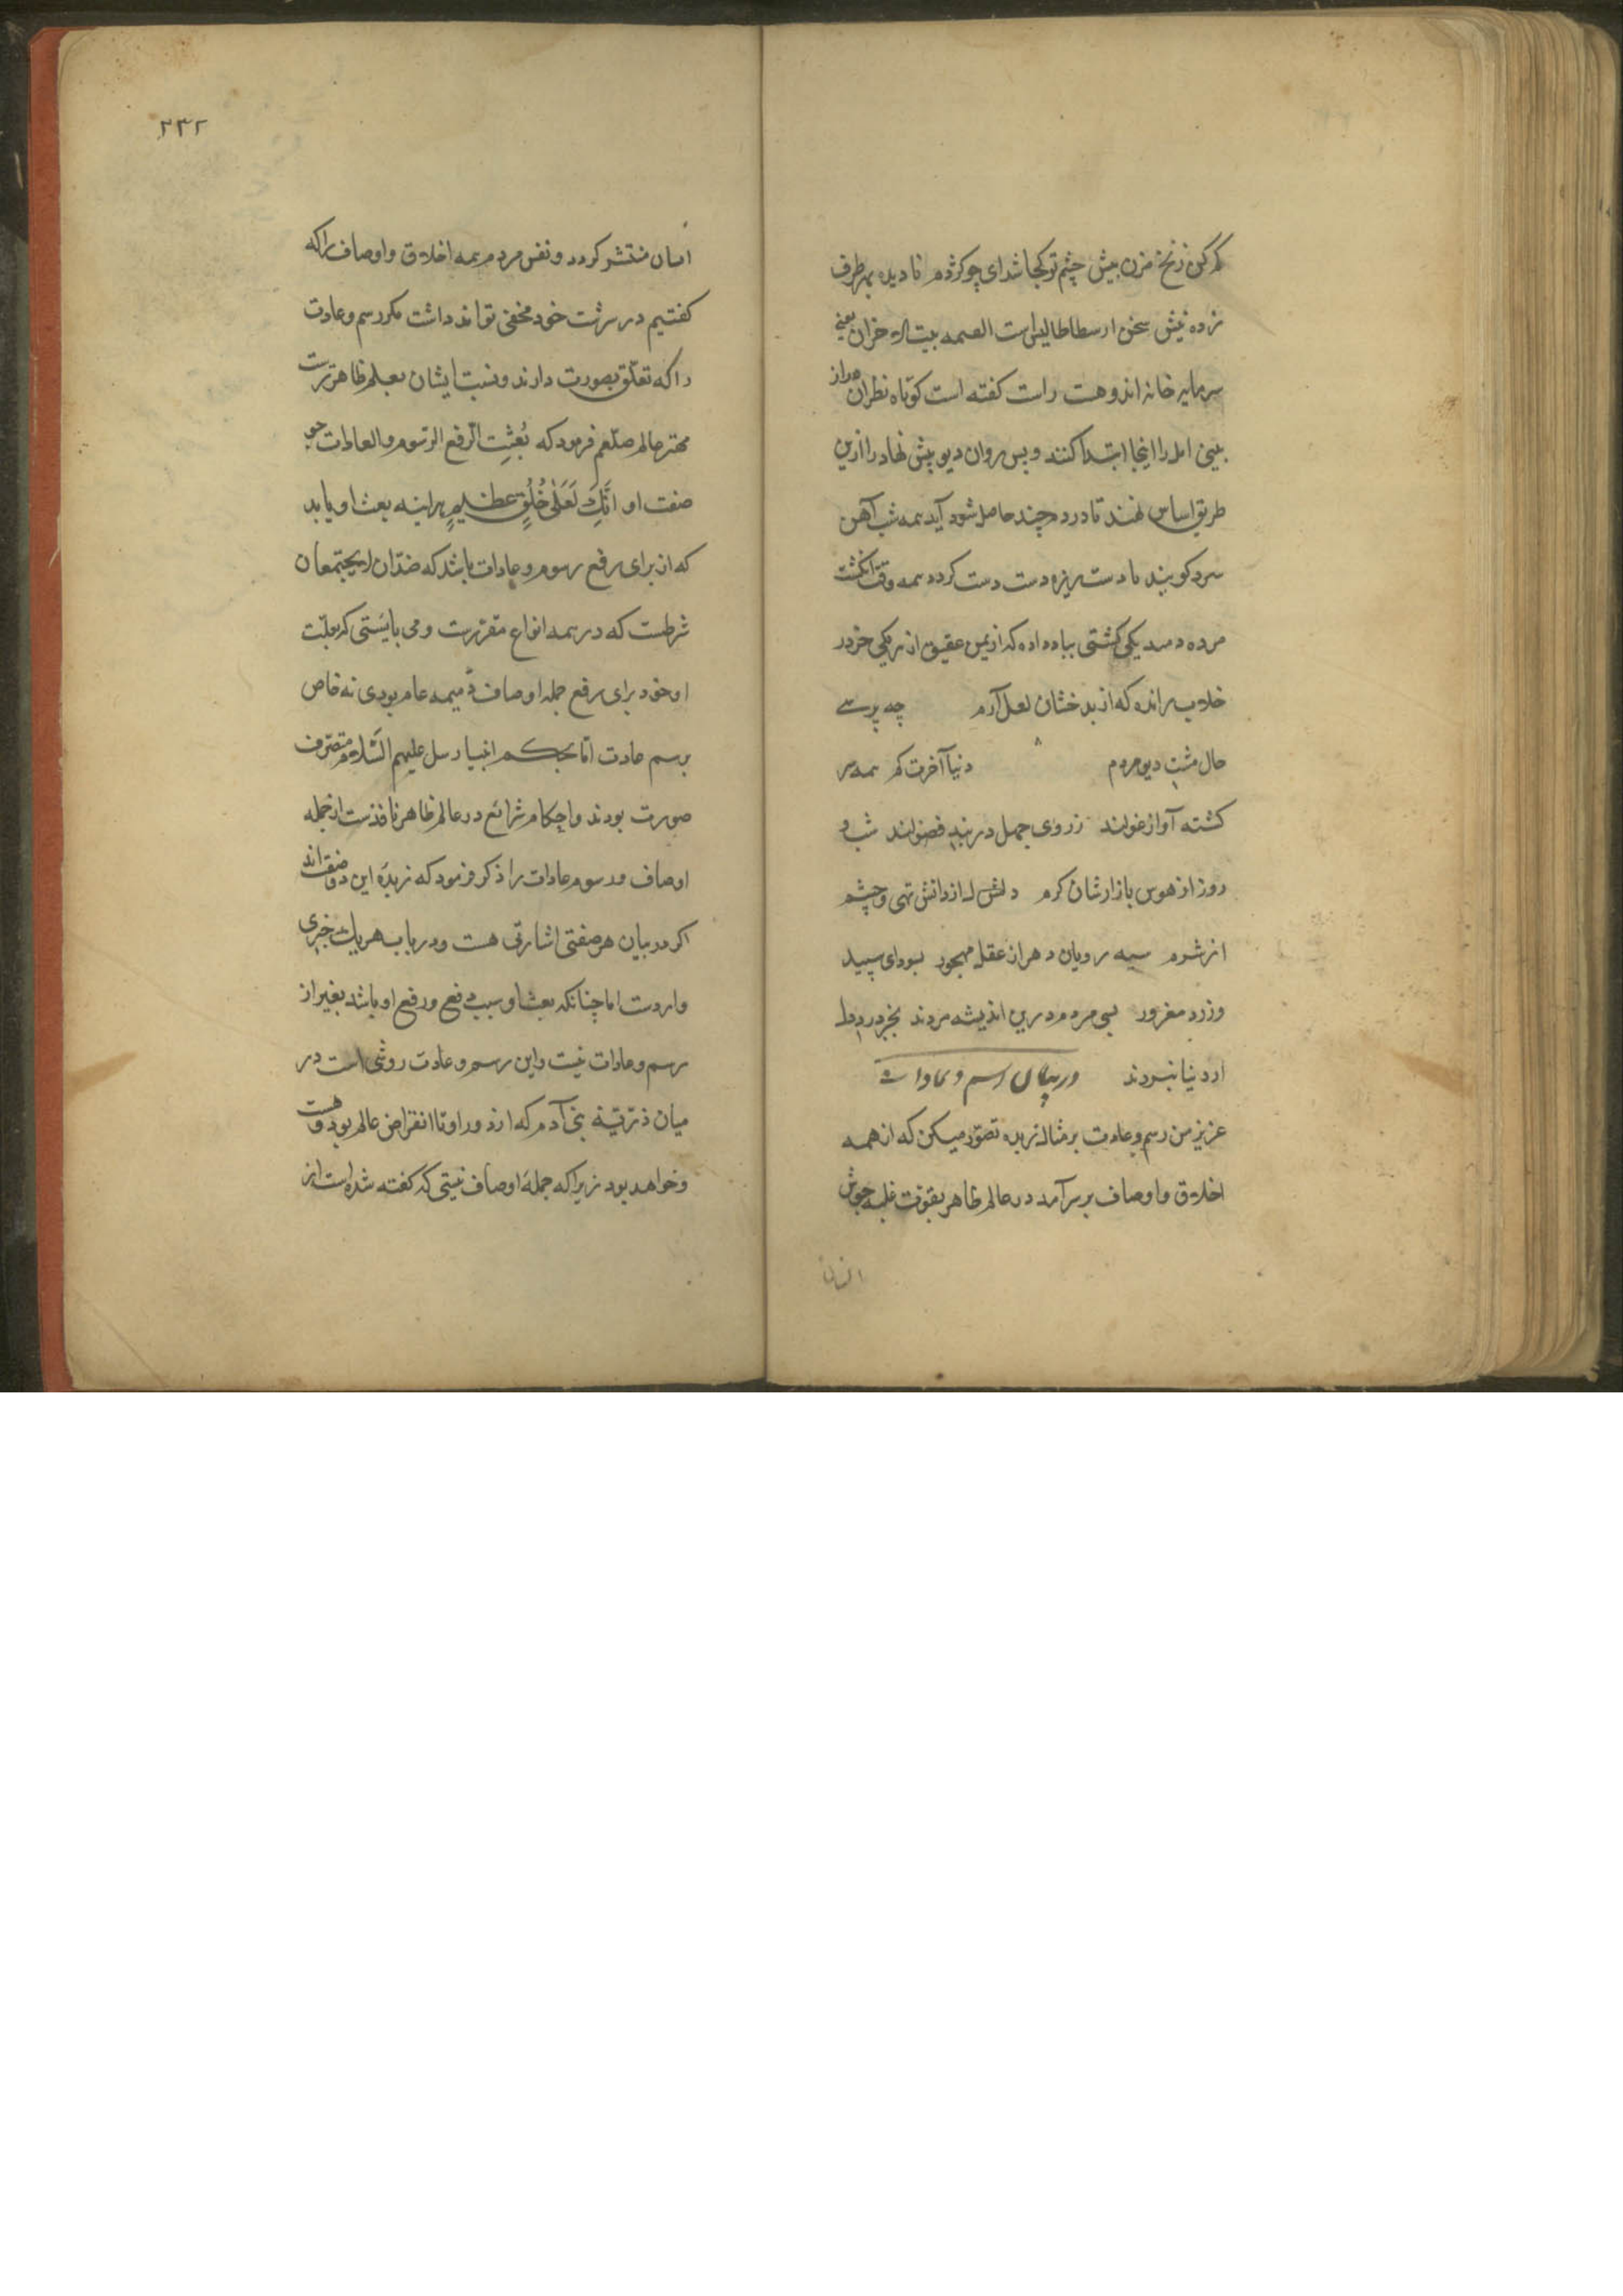 کم کن زنخ مزن پیش چشم تو کجا شد ای چو کژدم نادیده بهر طرف
زده نیش سخن ارسطاطالیس است الهمه بیت الاحزان یعنی
سرمایه خانه اندوهست راست گفته است کوتاه نظران دراز
بینی امل را اینجا ابتدا کنند و پس روان دیو پیش نهاد را ازین
طریق اساس نهند تا درد چند حاصل شود آید همه شب آهن
سرد کوبند تا دست ریزه دست دست گردد همه وقت انگشت
مرده دمند یکی کشتی بباد داده که از یمن عقیق از یکی خر در
خلاب رانده که از بدخشان لعل آرم چه پرسی
حال مشتی دیو مردم دنیا آخرت کم همه سر
گشته آواز غولند ز روی جهل در بند فضولند شب و
روز از هوس بازارشان گرم دلش از دانش تهی و چشم
از شرم سیه رویان دهر از عقل مهجور بسودای سپید
و زرد مغرور بسی مردم درین اندیشه مردند بجز درد
از دنیا نبردند در بیان رسم و عادات
عزیز من رسم و عادت بر مثال زبده تصور میکن که از همه
اخلاق و اوصاف بر سر آمد در عالم ظاهر بقوت غلبه جوش
انسان
۲۳۲
انسان منتشر گردد و نفس مردم همه اخلاق و اوصاف را که
گفتیم در سرشت خود مخفی تواند داشت مگر رسم و عادت
را که تعلق بصورت دارند و نسبت ایشان بعلم ظاهرترست
مهتر عالم صلعم فرمود که بُعِثتُ لرفع الرسوم والعادات چو
صفت او اِنَّكَ لَعَلٰی خُلُقٍ عَظِیمٍ هراینه بعث او باید
که از برای رفع رسوم و عادات باشد که ضدان لایجتمعان
شرطست که در همه انواع مقررست و می بایستی که بعلت
او خود برای رفع جمله اوصاف ذمیمه عام بودی نه خاص
برسم عادت اما بحکم انبیا رسل علیهم السّلام متصرف
صورت بودند و احکام شرائع در عالم ظاهر نافذست از جمله
اوصاف و رسوم عادات را ذکر فرمود که زبدهٔ این دو صفت اند
اگر در بیان هر صفتی اشارتی هست و در باب هر یک خبری
واردست اما چنانکه بعث او سبب دفع و رفع او باشد بغیر از
رسم و عادات نیست و این رسم و عادت روشی است در
میان ذریّهٔ بنی آدم که از دور او تا انقراض عالم بود و هست
و خواهد بود زیرا که جملهٔ اوصاف نیتی که گفته شده است از